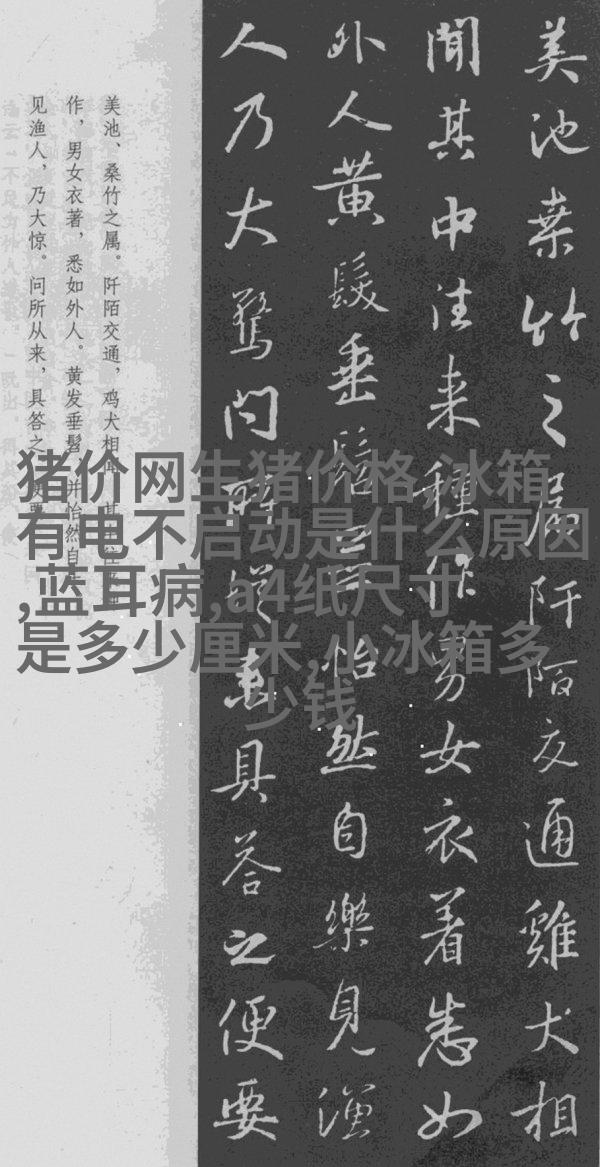 美池桒竹之屬阡陌交通雞犬相
聞其中往来種作男女衣着悉如
外人黄髮垂髫並怡然自樂見漁
人乃大驚問所従来具荅之便要
美池、桑竹之属。阡陌交通，鸡犬相
作，男女衣著，悉如外人。黄发垂髫，并怡然自
见渔人，乃大惊。问所从来，具答之
猪价网生猪价格,冰箱
有电不启动是什么原因
,蓝耳病,a4纸尺寸
是多少厘米,小冰箱多
少钱